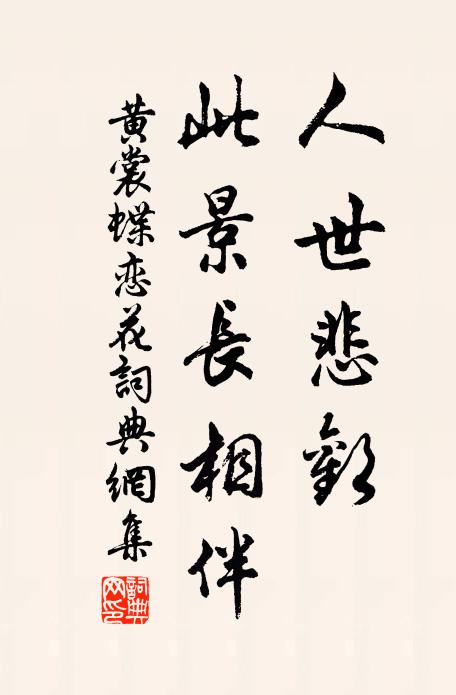 人世悲歡
此景長相伴
黄裳蝶恋花詞典網集
詞典
网印